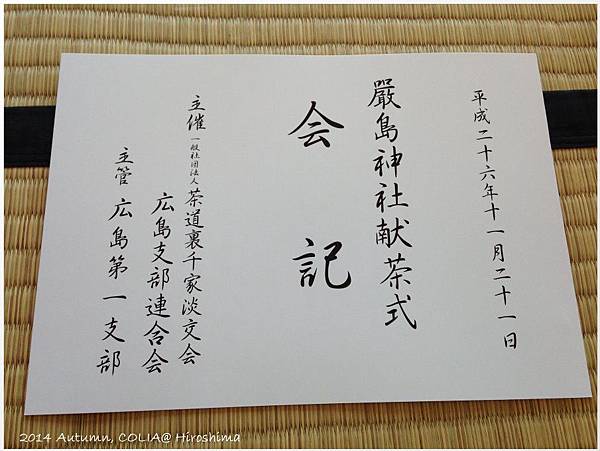 平成二十六年十一月二十一日
嚴島神社献茶式
会記
主催 一般社団法人 茶道裏千家淡交会
広島支部連合会
主管 広島第一支部
2014 Autumn, COLIA@ Hiroshima